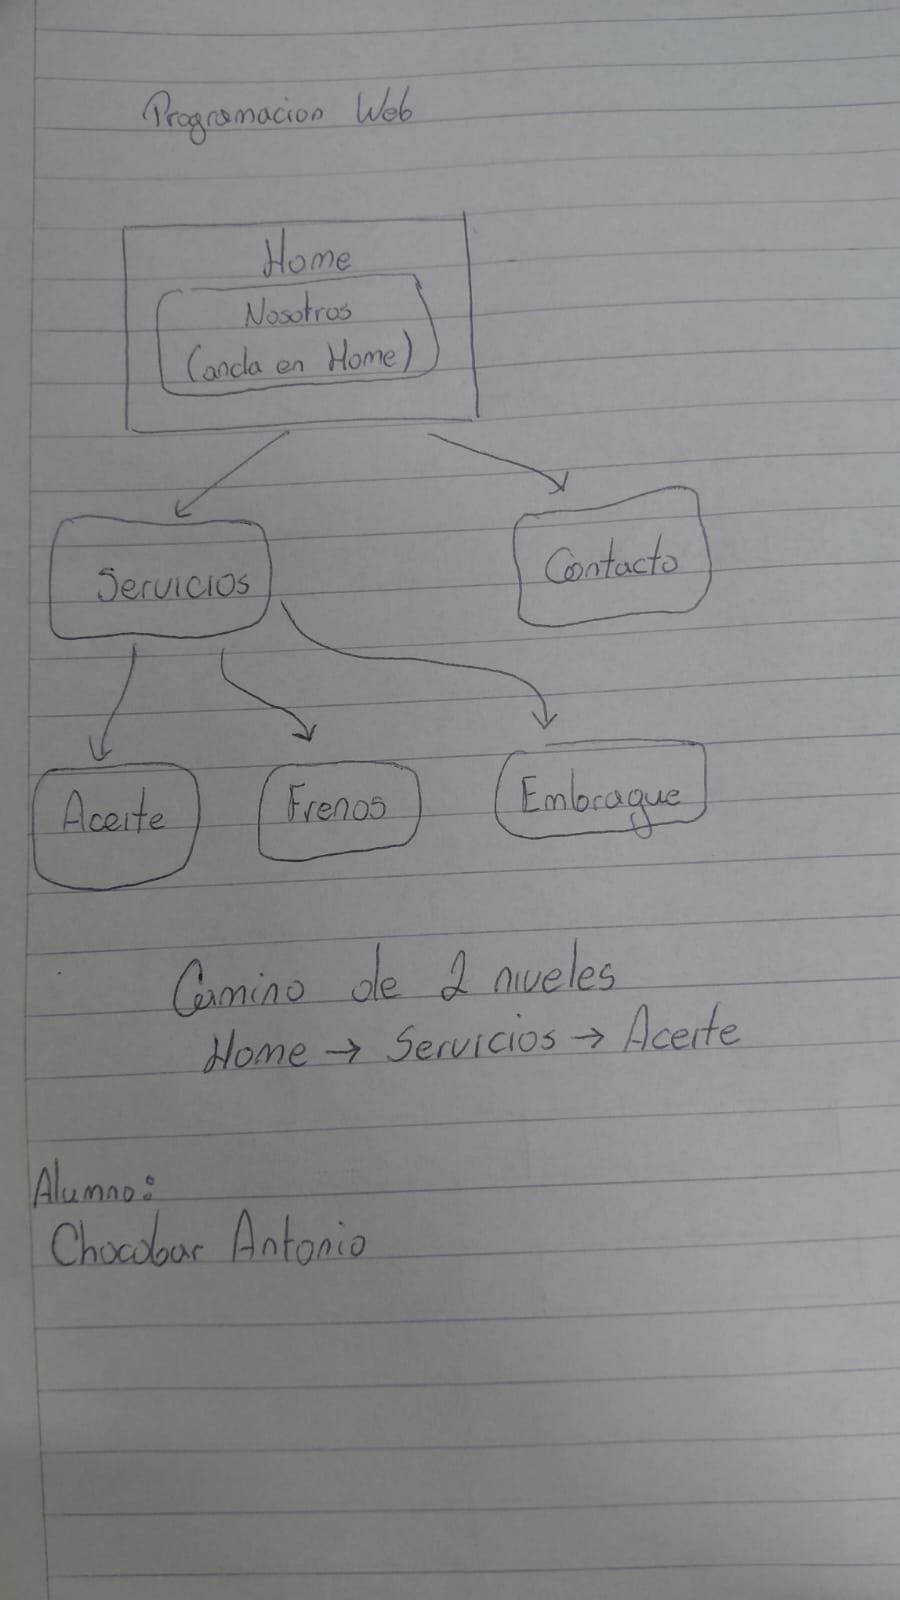 Programacion Web
Home
Nosotros
(ancla en Home)
Servicios
Contacto
Aceite
Frenos
Embrague
Camino de 2 niveles
Home → Servicios → Aceite
Alumno:
Chocobar Antonio